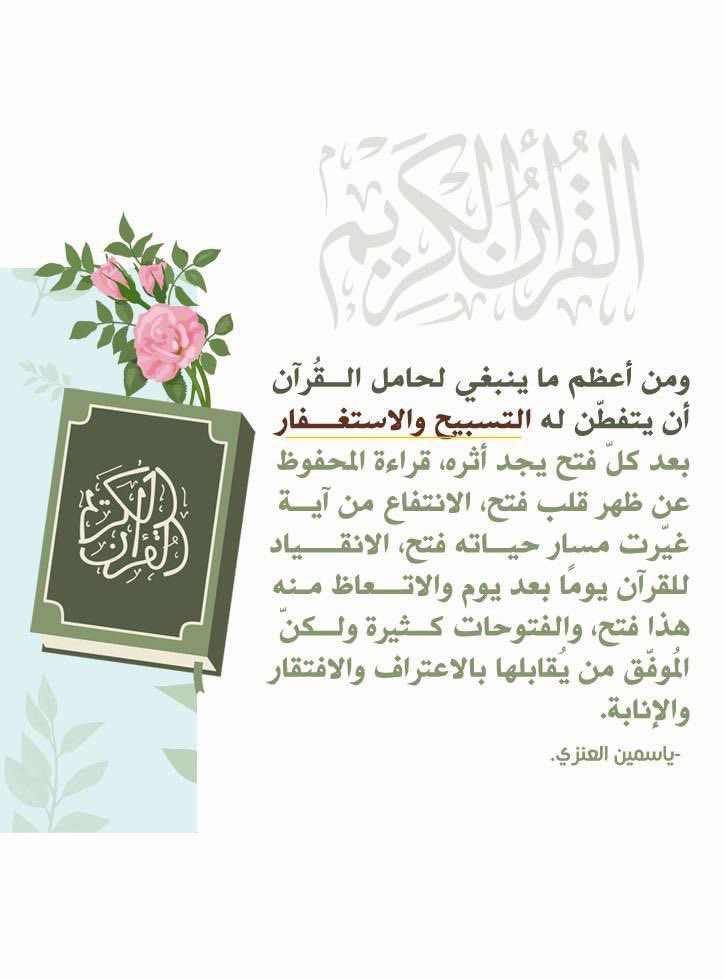 القُرآن الكَرِيم
ومن أعظم ما ينبغي لحامل القُرآن
أن يتفطّن له التسبيح والاستغفار
بعد كلّ فتح يجد أثره، قراءة المحفوظ
عن ظهر قلب فتح، الانتفاع من آية
غيّرت مسار حياته فتح، الانقياد
للقرآن يومًا بعد يوم والاتعاظ منه
هذا فتح، والفتوحات كثيرة ولكنّ
المُوفّق من يُقابلها بالاعتراف والافتقار
والإنابة.
-ياسمين العنزي.
القرآن الكريم